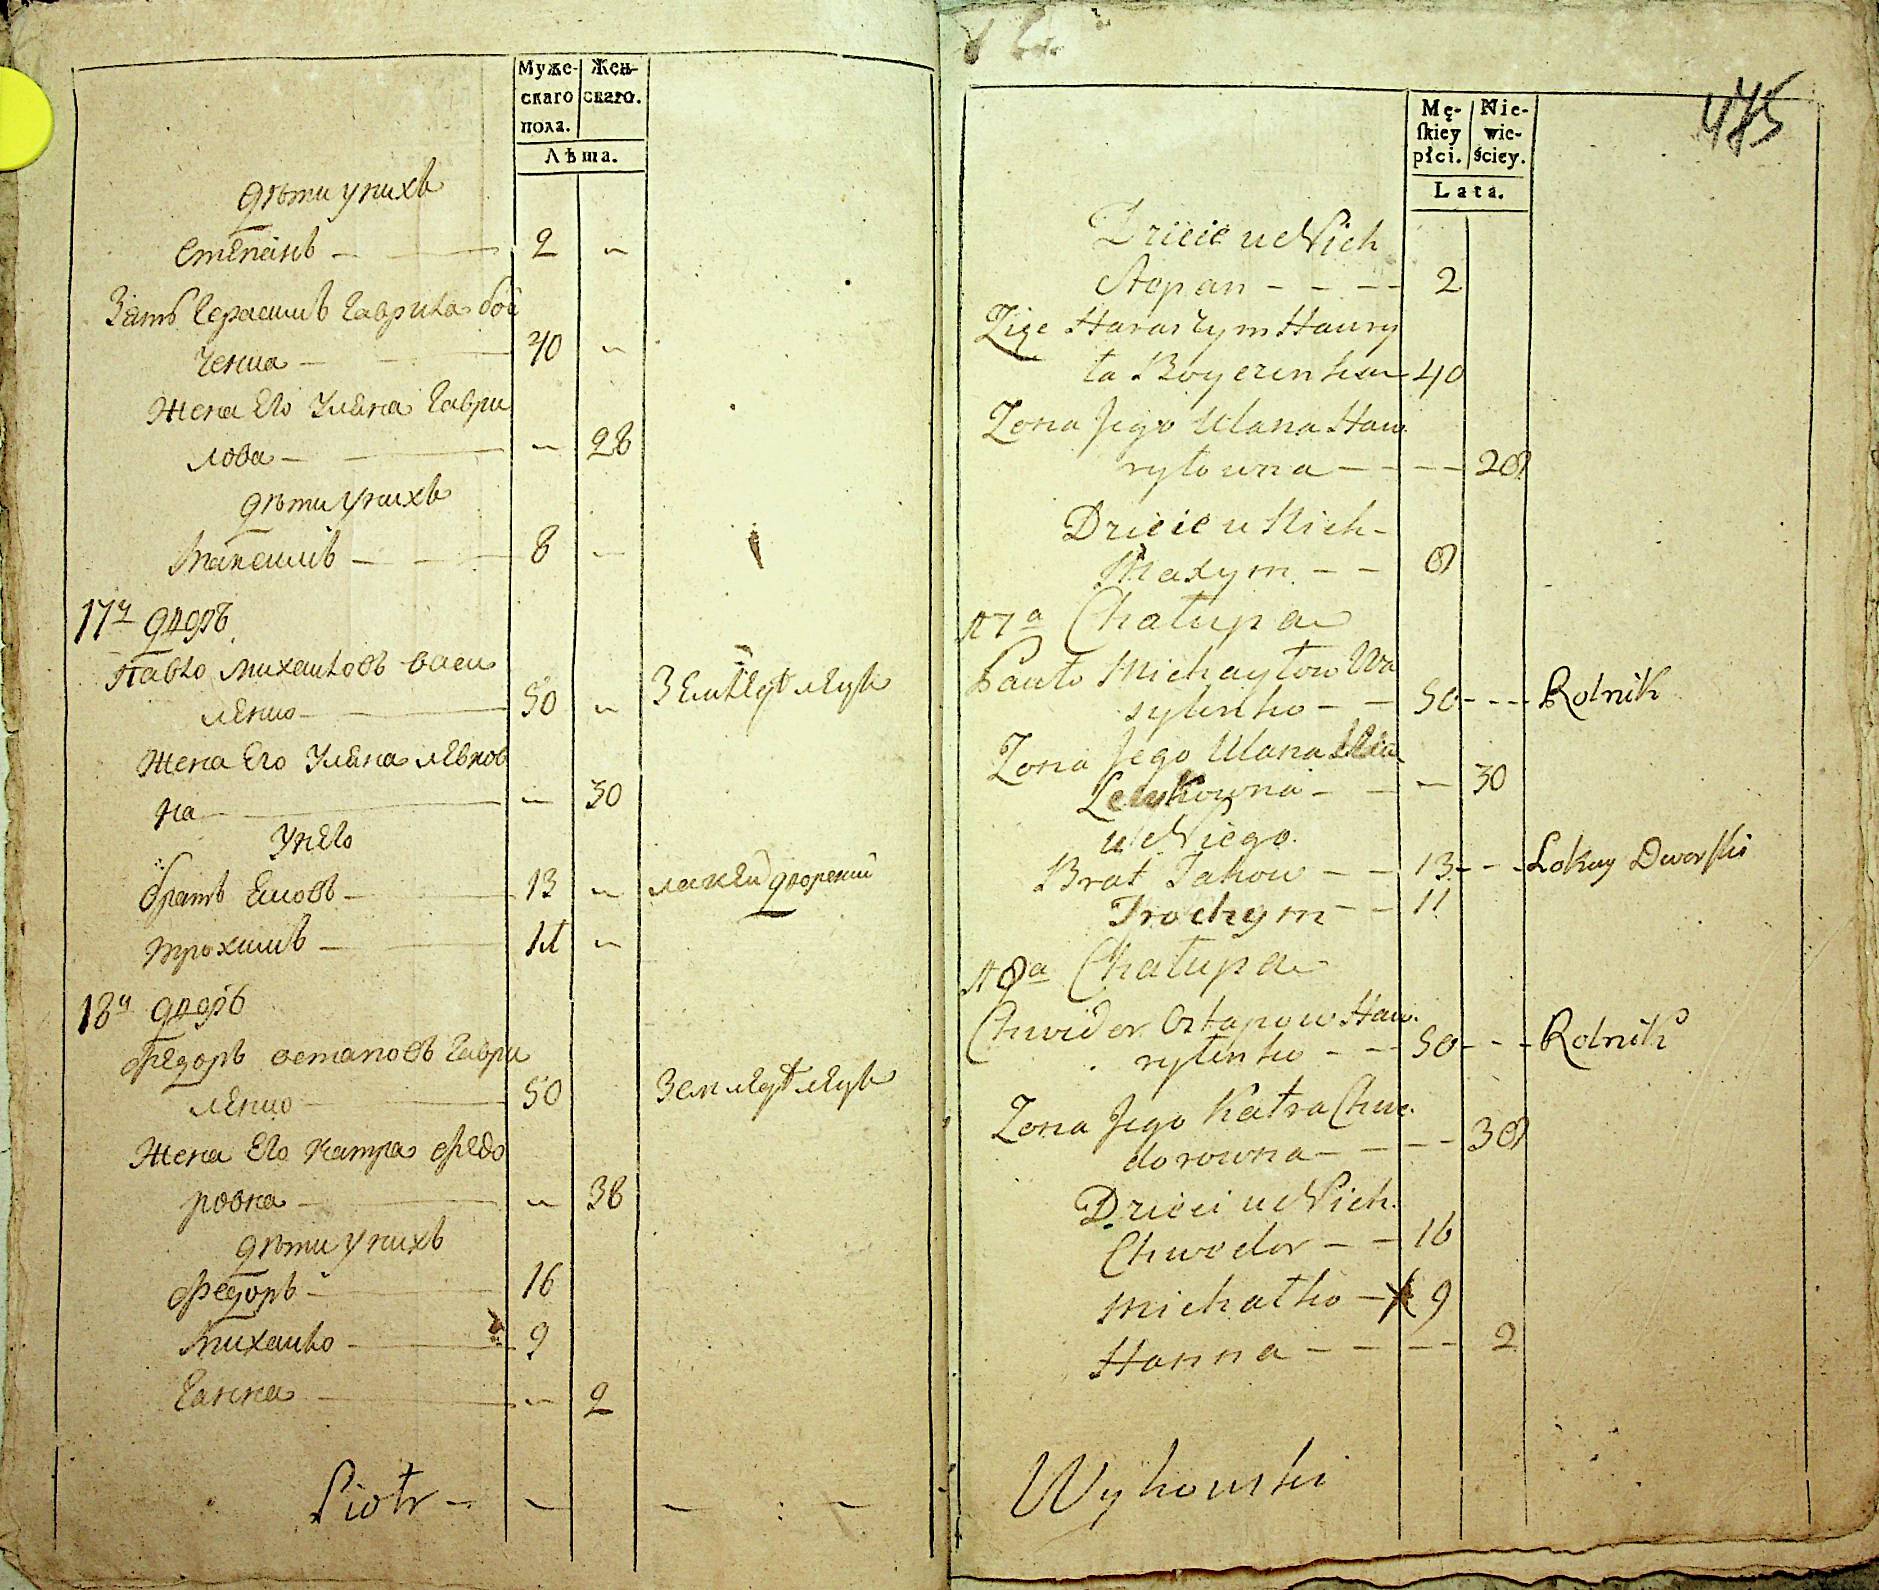 Муже- Жен-
скаго скаго.
пола.
Лѣта.
дѣти у нихъ
Степанъ - 2 -
Зять Герасимъ Гаврила бое
ченка - 40 -
Жена Его Уляна Гаври
лова - - 28
дѣти у нихъ
Максимъ - 8 -
17й дворъ
Павло Михайловъ Васи
ленко - 50 - Земледѣлецъ
Жена Его Уляна Левков
на - - 30
У него
братъ Яковъ - 13 - лакей дворский
Трохимъ - 11 -
18й дворъ
Федоръ Остаповъ Гаври
ленко - 50 Земледѣлецъ
Жена Его Катра Федо
ровна - - 38
дѣти у нихъ
Федоръ - 16
Михайло - 9
Ганна - - 2
Piotr - - - : -
475
Mę- Nie-
skiey wie-
płci. ściey.
Lata.
Dziecie u Nich
Stepan - - - - 2
Zięc Haraszym Hawry
ła Boyczenko 40
Zona Jego Ulana Haw
ryłowna - - - - 28
Dziecie u Nich -
Maxym - - 8
17a Chałupa
Pawło Michayłow Wa
sylenko - - 50 - - - Rolnik
Zona Jego Ulana
Lewkowna - - - 30
u Niego
Brat Jakow - - 13 - - - Lokay Dworski
Trochym - - 11
18a Chałupa
Chwidor Ostapow Haw
rylenko - - 50 - - - Rolnik
Zona Jego Katra Chwe
dorowna - - - - 38
Dzieci u Nich
Chwedor - - 16
Michałko - 9
Hanna - - - - 2
Wykowski